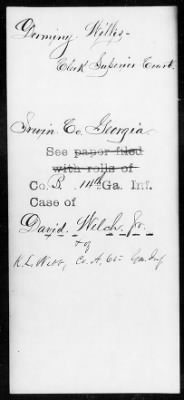 Deming, Willis -
Clerk Superior Court.
Irwin Co. Georgia
See paper filed
with rolls of
Co. B. 14th Ga. Inf.
Case of
David. Welch, Jr.
+ of
K. L. Co. A, 61= Ga. Inf